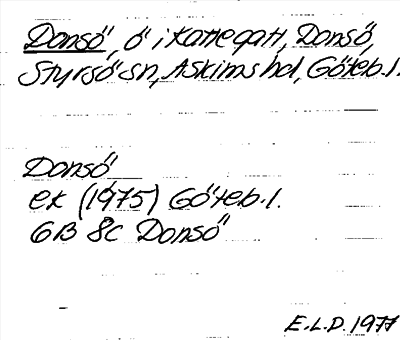 Donsö, ö i Kattegatt, Donsö,
Styrsö sn, Askims hd, Göteb. l.
Donsö
ek (1975) Göteb. l.
6B 8c Donsö
E.L.D. 1977